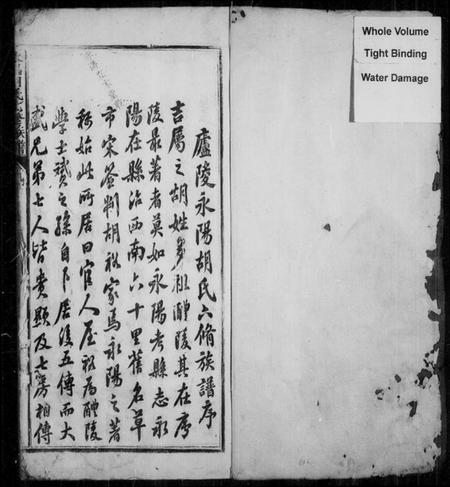 廬陵永陽胡氏六脩族譜序
吉屬之胡姓多祖醴陵其在廬
陵最著者莫如永陽考縣志永
陽在縣治西南六十里舊名草
市宋簽判胡 家焉永陽之著
稱始此所居曰官人屋 為醴陵
學士 之孫自卜居後五傳而大
盛兄弟七人皆貴顯及七房相傳
Whole Volume
Tight Binding
Water Damage